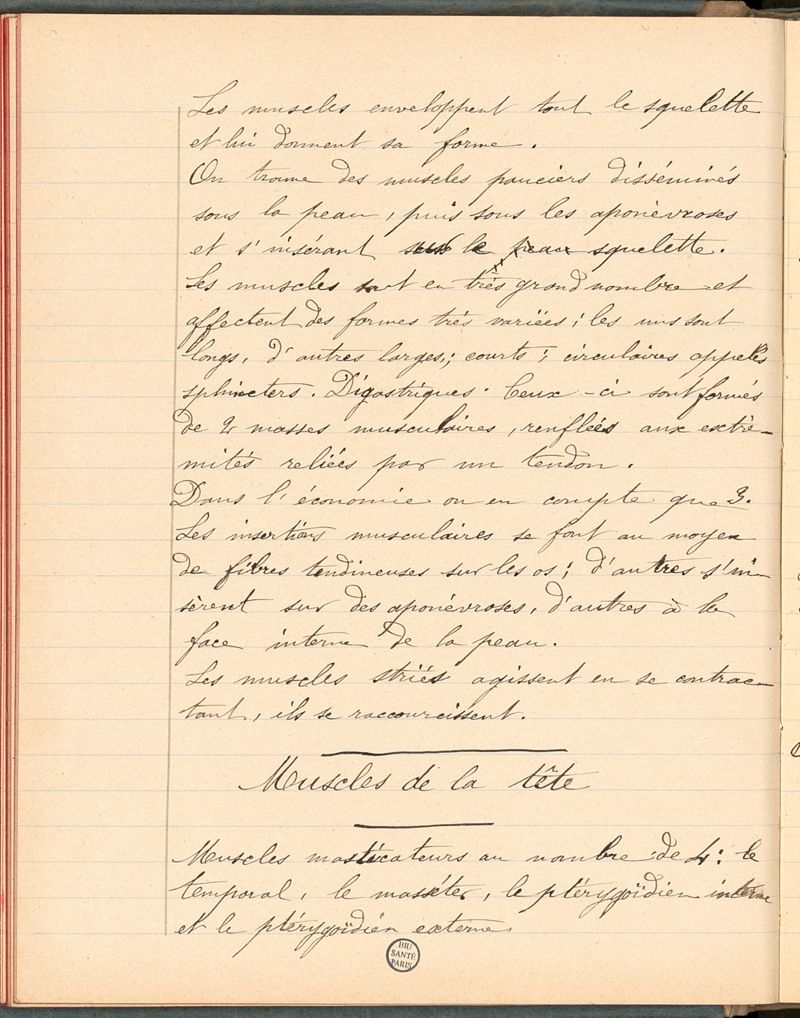 Les muscles enveloppent tout le squelette
et lui donnent sa forme.
On trouve des muscles pauciers disséminés
sous la peau, puis sous les aponévroses
et s'insérant sur le peau squelette.
Les muscles sont en très grand nombre et
affectent des formes très variées ; les uns sont
longs, d'autres larges ; courts ; circulaires appelés
sphincters. Digastriques. Ceux-ci sont formés
de 2 masses musculaires, renflées aux extré-
mités reliées par un tendon.
Dans l'économie on en compte que 3.
Les insertions musculaires se font au moyen
de fibres tendineuses sur les os ; d'autres s'in-
sèrent sur des aponévroses, d'autres à la
face interne de la peau.
Les muscles striés agissent en se contrac-
tant, ils se raccourcissent.
Muscles de la tête
Muscles masticateurs au nombre de 4 : le
temporal, le masséter, le ptérygoïdien interne
et le ptérygoïdien externe.
BIU
SANTÉ
PARIS